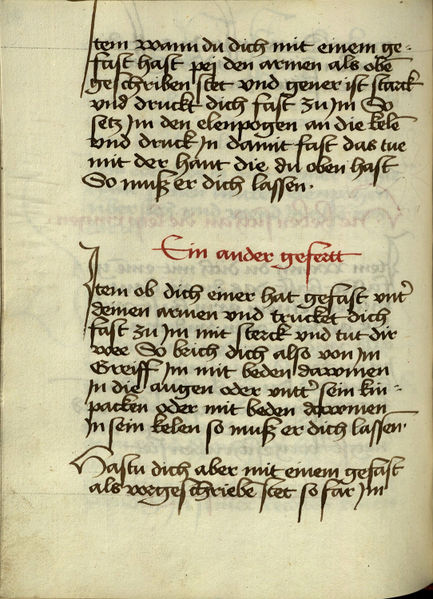 Item wann du dich mit einem ge-
fast hast pej den armen als obē
geschriben stet vnd gener ist starck
vnd druckt dich fast zu Im So
setz Im den elenpogen an die kelē
vnd druck In damit fast das tue
mit der hant die du oben hast
So muß er dich lassen.
Ein ander gefertt
Item ob dich einer hat gefast vntt̄
deinen armen vnd trucket dich
fast zu Im mit sterck vnd tut dir
wee So brich dich also von Im
Greiff Im mit beden dawmen
In die augen oder vntt̄ sein kin-
packen oder mit beden dawmen
In sein kelen so muß er dich lassen.
Hastu dich aber mit einem gefast
als vorgeschriebē stet so far Im